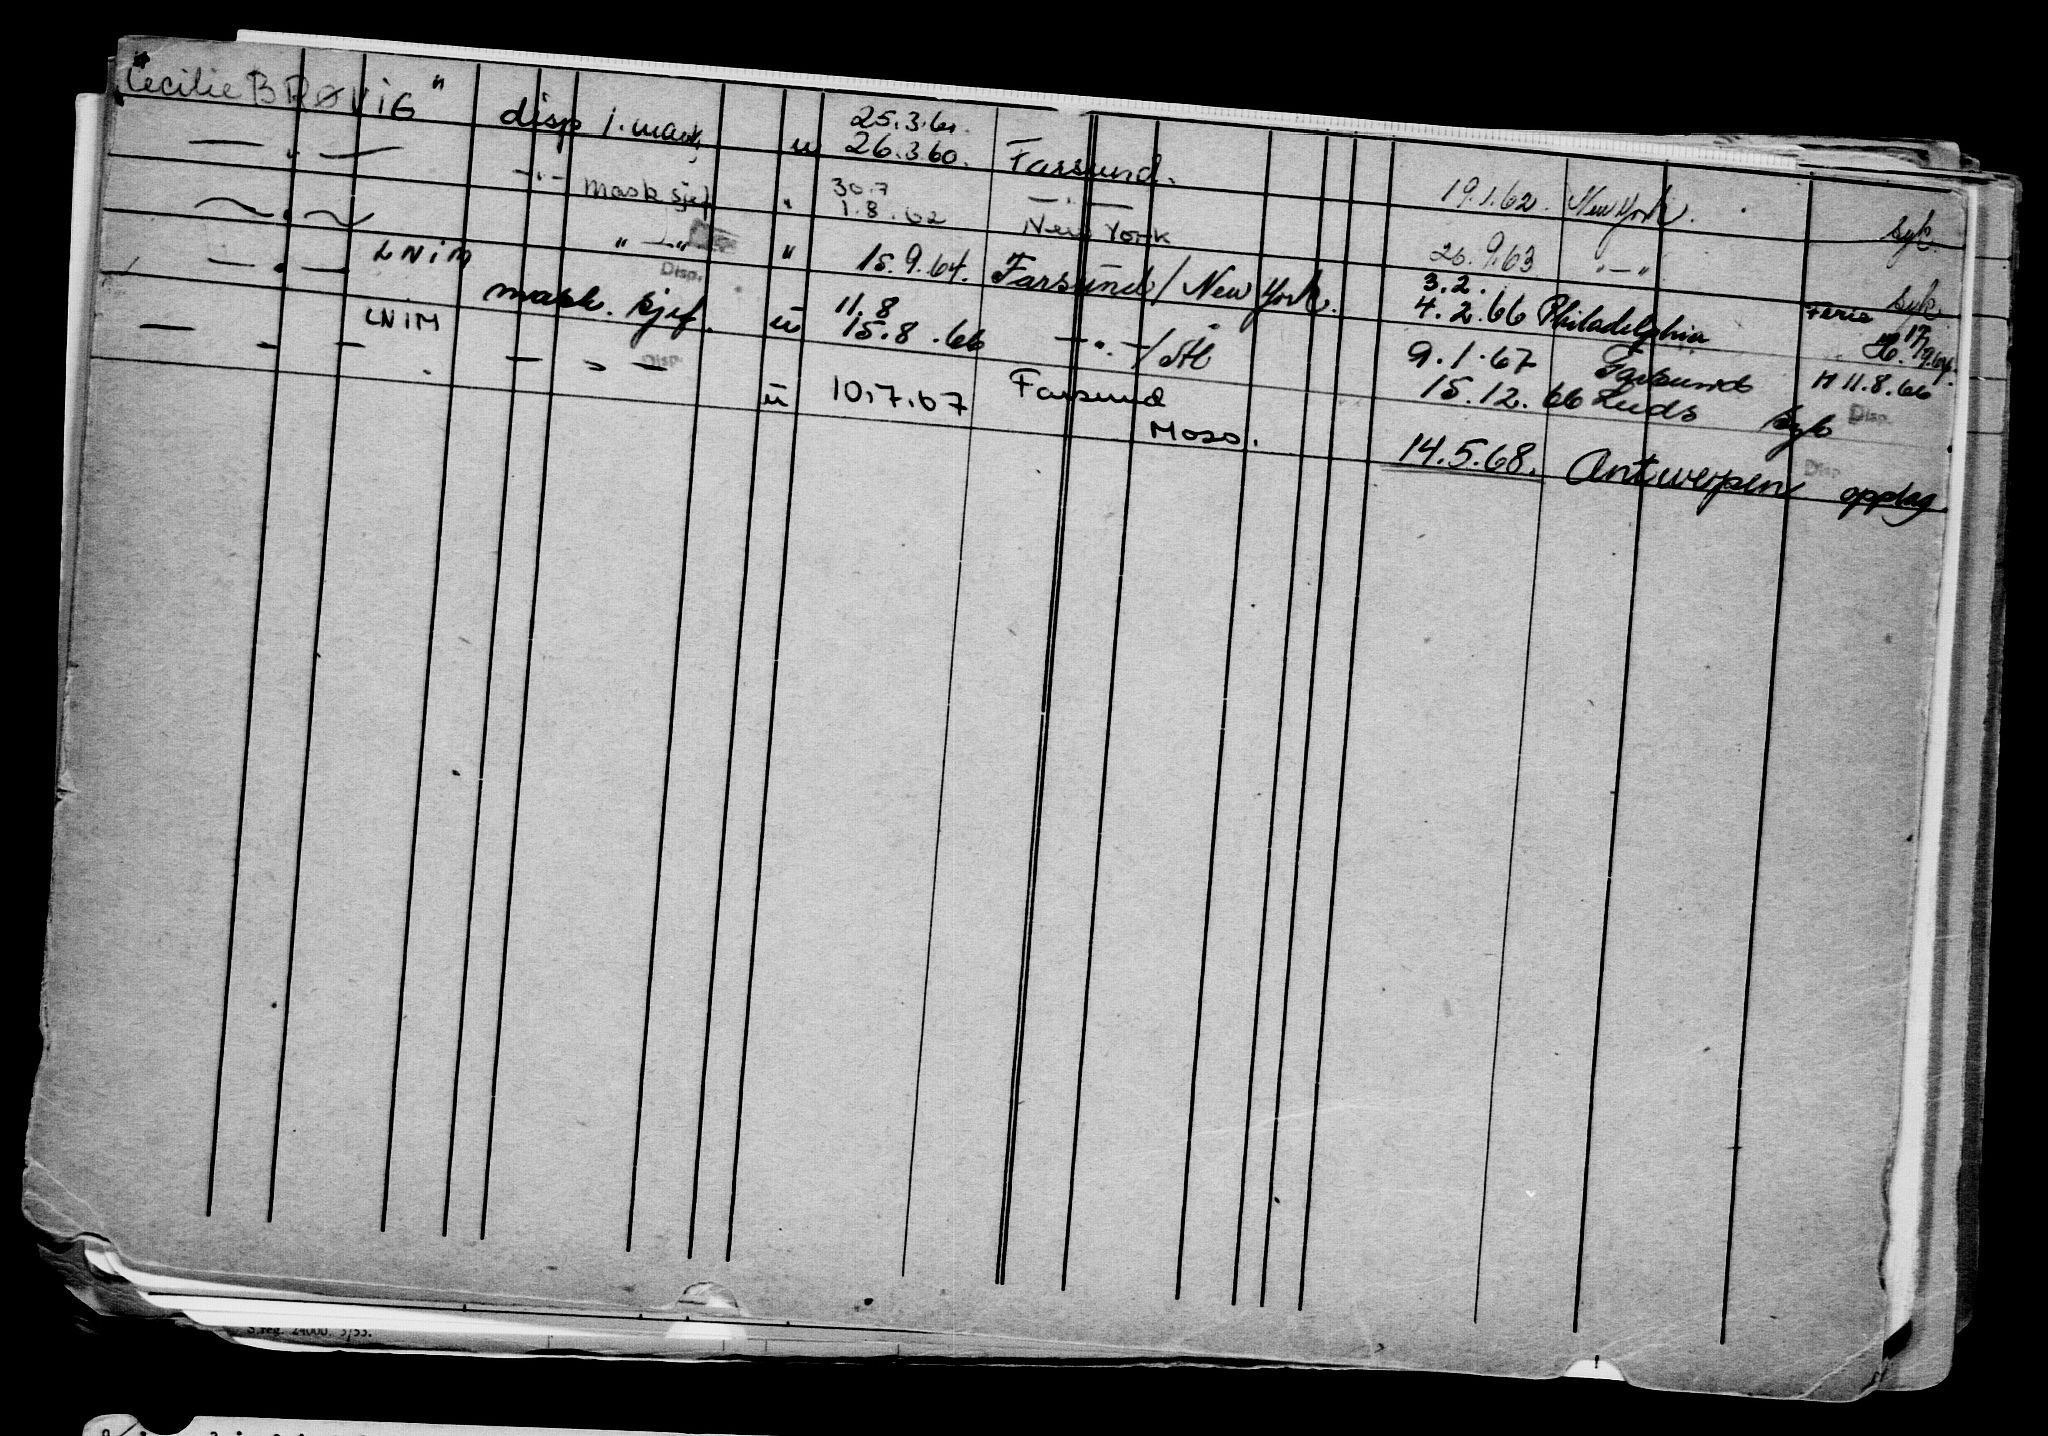 "Cecilie BRØVIG" disp 1. mask, u 25.3.61. 26.3.60. Farsund. 19.1.62. New York. syk.
— " — -"- mask sjef " 30.7 1.8.62 — " — New York 26.9.63 " — " syk
— " — LNIM " — " Disp. " 15.9.64. Farsund / New York. 3.2. 4.2.66 Philadelphia Ferie H. 17/9.64.
— " — LNIM mask. sjef. u 11.8 15.8.66 — " — / Stb 9.1.67 Farsund H 11.8.66
15.12.66 Leeds syk Disp.
— " — — " — Disp. u 10.7.67 Farsund Moss. 14.5.68. Antwerpen Disp. opplag
S.reg. 24000. 3/53.